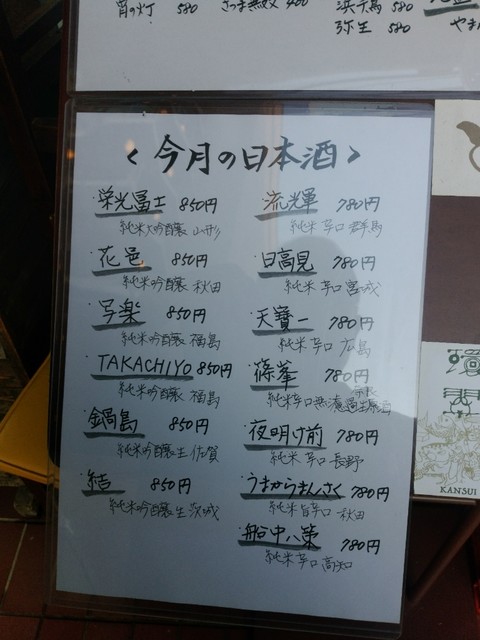 宵の灯 580
さつま無双 400
浜千鳥 580
弥生 580
<今月の日本酒>
・栄光冨士 850円
純米大吟醸 山形
・花邑 850円
純米吟醸 秋田
・写楽 850円
純米吟醸 福島
・TAKACHIYO 850円
純米吟醸 福島
・鍋島 850円
純米吟醸生 佐賀
・結 850円
純米吟醸生 茨城
・流輝 780円
純米辛口 群馬
・日高見 780円
純米辛口 宮城
・天寶一 780円
純米辛口 広島
・篠峯 780円
純米辛口無濾過生原酒
・夜明け前 780円
純米辛口 長野
・うまからまんさく 780円
純米旨辛口 秋田
・船中八策 780円
純米辛口 高知
KANSUI